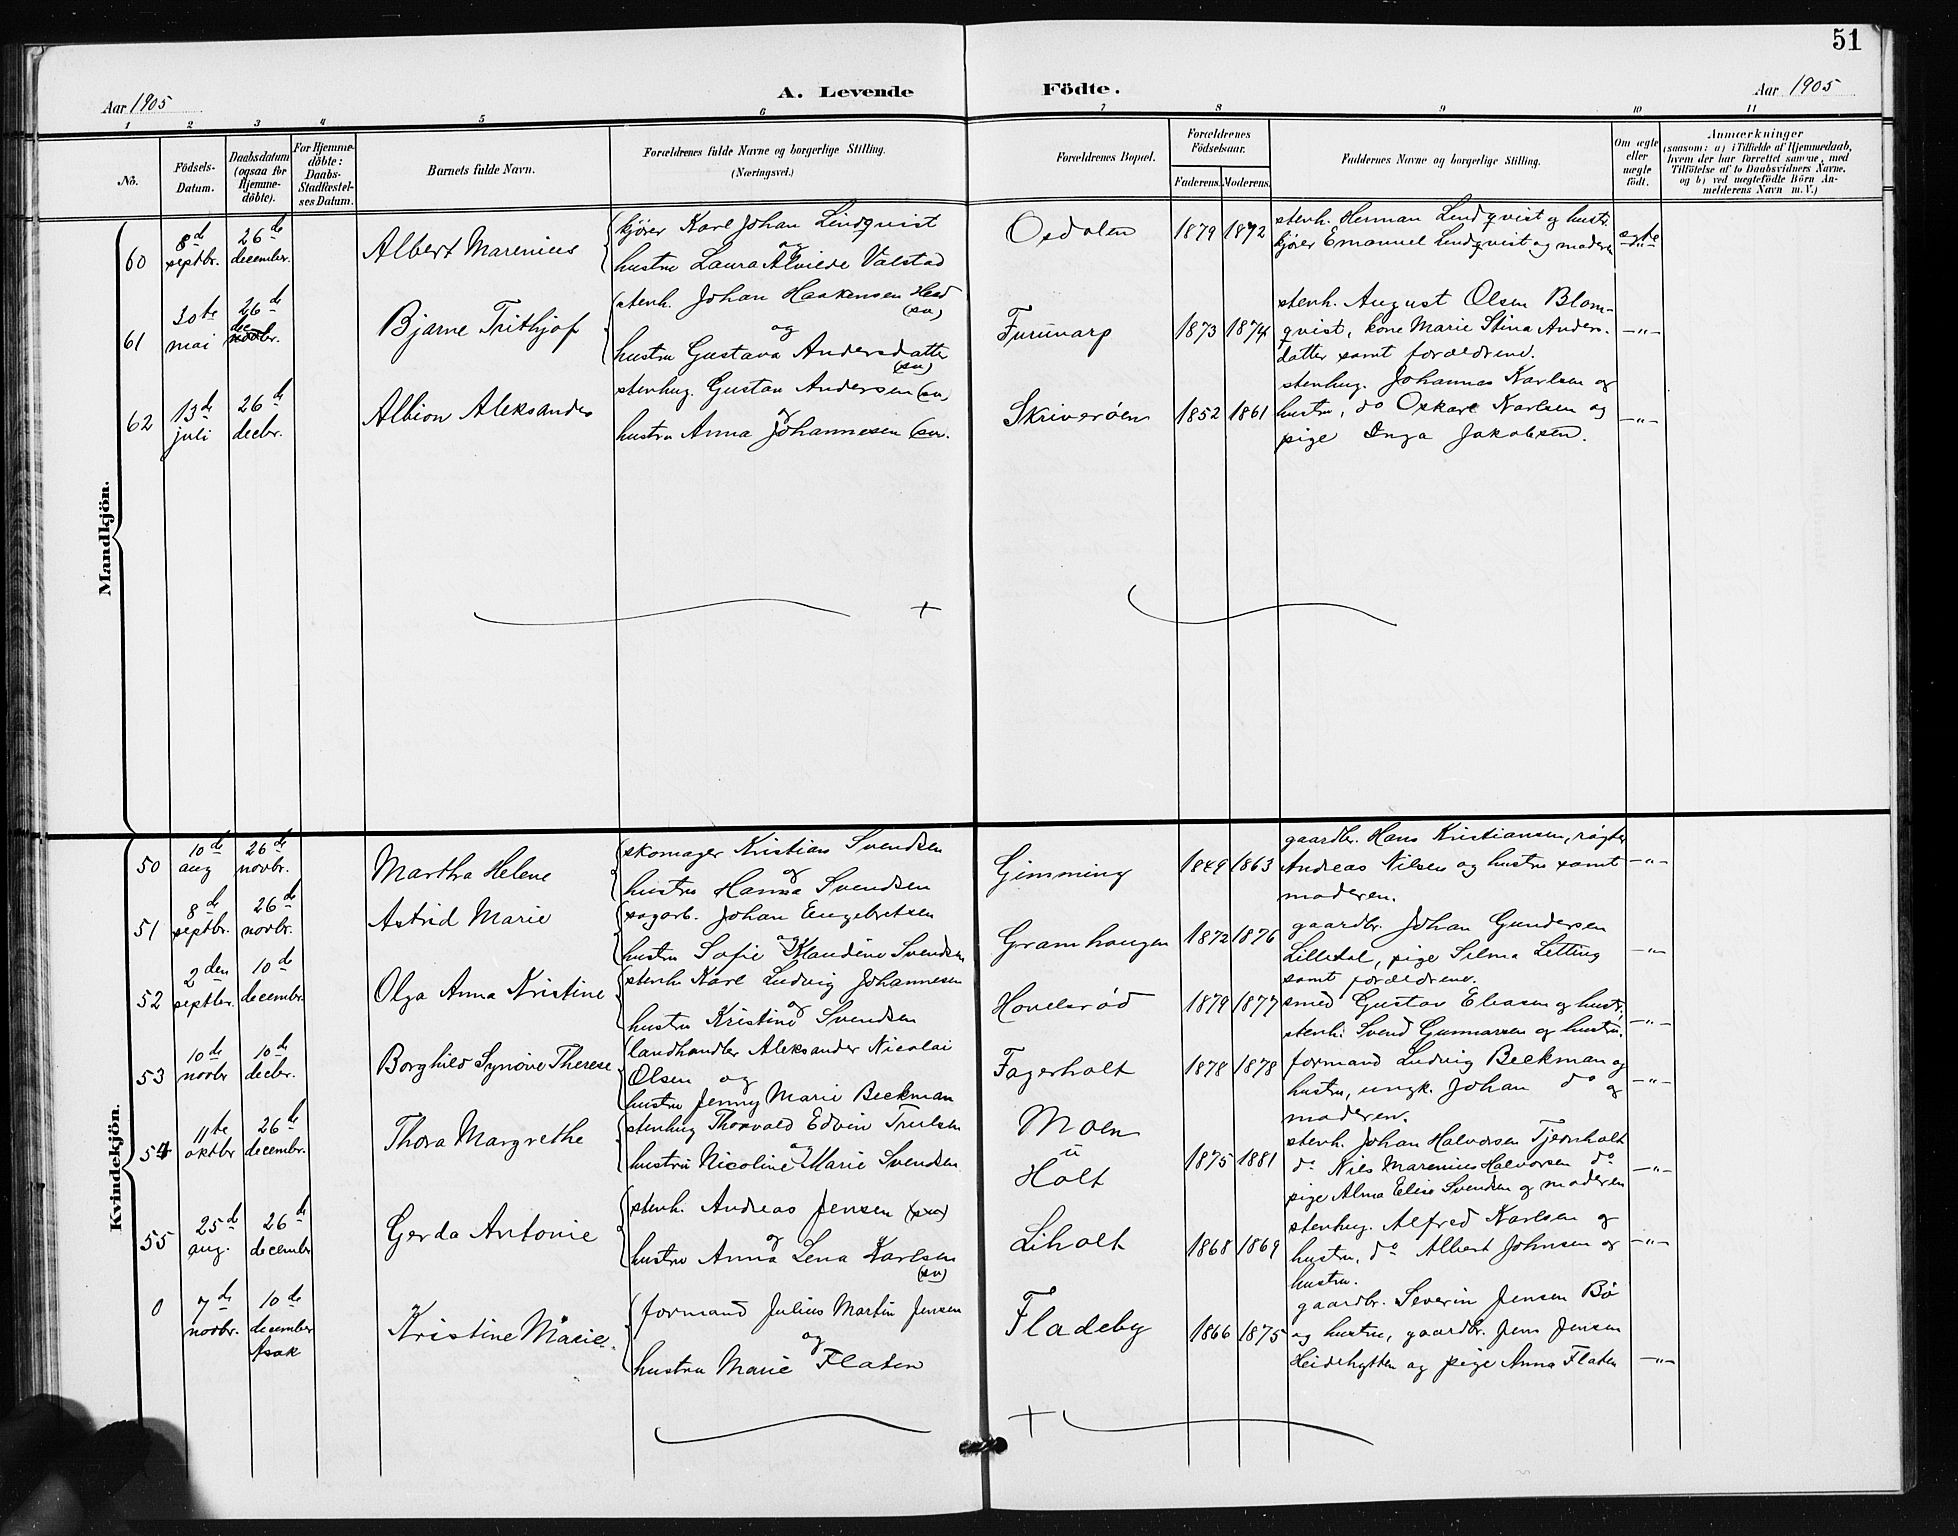 51
Aar 1905
A. Levende Födte.
Aar 1905
1 2 3 4 5 6 7 8 9 10 11
No.
Födsels-Datum.
Daabsdatum (ogsaa for Hjemme-döbte).
For Hjemme-döbte: Daabs-Stadfæstel-ses Datum.
Barnets fulde Navn.
Forældrenes fulde Navne og borgerlige Stilling. (Næringsvei.)
Forældrenes Bopæl.
Forældrenes Födselsaar.
Faderens. Moderens.
Faddernes Navne og borgerlige Stilling.
Om ægte eller uægte födt.
Anmærkninger
(saasom: a) i Tilfælde af Hjemmedaab,
hvem der har forrettet samme, med
Tilföielse af to Daabsvidners Navne,
og b) ved uægtefödte Börn An-
melderens Navn m. V.)
Mandkjön.
60 8d septbr. 26de december. Albert Marenius
kjører Karl Johan Lindqvist
og
hustru Laura Alvilde Valstad
Osdalen 1879 1872
stenh. Herman Lindqvist og hustr.
kjører Emanuel Lindqvist og moderen
ægte
61 30te mai 26de dec novbr. Bjarne Trithjof
stenh. Johan Haakensen Hed (sv)
og
hustru Gustava Andersdatter (sv)
Furuvarp 1873 1874
stenh. August Olsen Blom-
qvist, kone Marie Stina Anders-
datter samt forældrene.
—"—
62 13de juli 26de decbr. Albion Aleksander
stenhug. Gustav Andersen (sv
og
hustru Anna Johannesen (sv.
Skriverøen 1852 1861
stenhug. Johannes Karlsen og
hustru, do Oskar Karlsen og
pige Inga Jakobsen.
—"—
Kvindekjön.
50 10de aug 26de novbr. Martha Helene
skomager Kristian Svendsen
og
hustru Hanna Svendsen
Gimming 1849 1863
gaardbr. Hans Kristiansen, røgter
Andreas Nilsen og hustru samt
moderen.
—"—
51 8de septbr. 26de novbr. Astrid Marie
sagarb. Johan Engebretsen
og
hustru Sofie Klaudine Svendsen
Gramhaugen 1872 1876
gaardbr. Johan Gundersen
Lilledal, pige Selma Letting
samt forældrene.
—"—
52 2den septbr. 10de decembr. Olga Anna Kristine
stenh. Karl Ludvig Johannesen
og
hustru Kristine Svendsen
Hovelsrød 1879 1877
smed Gustav Eliasen og hustr,
stenh. Svend Gunnarsen og hustru.
—"—
53 10de novbr 10de decbr. Borghild Synøve Therese
landhandler Aleksander Nicolai
Olsen og
hustru Jenny Marie Beckman
Fagerholt 1878 1878
formand Ludvig Beckman og
hustru, ungk. Johan do og
moderen.
—"—
54 11te oktbr 26de decembr. Thora Margrethe
stenhug Thorvald Edvin Trulsen
og
hustru Nicoline Marie Svendsen
Moen
u
Holt 1875 1881
stenh. Johan Halvorsen Tjernholt
do Nils Marenius Halvorsen do
pige Alma Elise Svendsen og moderen
—"—
55 25d aug. 26de december Gerda Antonie
stenh. Andreas Jensen (sv)
og
hustru Anna Lena Karlsen (sv)
Liholt 1868 1869
stenhug. Alfred Karlsen og
hustru, do Albert Johnsen og
hustru.
—"—
0 7de novbr. 10de december Asak Kristine Marie.
formand Julius Martin Jensen
og
hustru Marie Flaten
Fladeby 1866 1875
gaardbr. Severin Jensen Bø
og hustru, gaardbr. Jens Jensen
Heidehytten og pige Anna Flaten
—"—